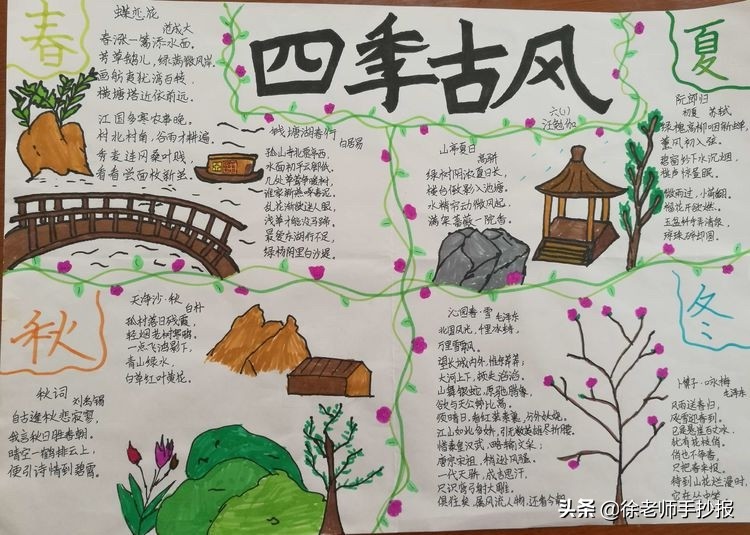 四季古风
六(1)
春
蝶恋花
范成大
春涨一篙添水面。
芳草鹅儿，绿满微风岸。
画舫夷犹湾百转，
横塘塔近依前远。
江国多寒农事晚。
村北村南，谷雨才耕遍
秀麦连冈桑叶贱，
看看尝面收新茧。
钱塘湖春行
白居易
孤山寺北贾亭西，
水面初平云脚低。
几处早莺争暖树，
谁家新燕啄春泥。
乱花渐欲迷人眼，
浅草才能没马蹄。
最爱东湖行不足，
绿杨阴里白沙堤。
夏
山亭夏日
高骈
绿树阴浓夏日长，
楼台倒影入池塘。
水精帘动微风起，
满架蔷薇一院香。
阮郎归
初夏 苏轼
绿槐高柳咽新蝉，
薰风初入弦。
碧窗纱下水沉烟，
棋声惊昼眠。
微雨过，小荷翻，
榴花开欲燃。
玉盆纤手弄清泉，
琼珠碎却圆。
秋
天净沙·秋
白朴
孤村落日残霞，
轻烟老树寒鸦，
一点飞鸿影下，
青山绿水，
白草红叶黄花。
秋词
刘禹锡
自古逢秋悲寂寥，
我言秋日胜春朝。
晴空一鹤排云上，
便引诗情到碧霄。
冬
沁园春·雪
毛泽东
北国风光，千里冰封，
万里雪飘。
望长城内外，惟余莽莽；
大河上下，顿失滔滔。
山舞银蛇，原驰蜡象，
欲与天公试比高。
须晴日，看红装素裹，分外妖娆。
江山如此多娇，引无数英雄尽折腰。
惜秦皇汉武，略输文采；
唐宗宋祖，稍逊风骚。
一代天骄，成吉思汗，
只识弯弓射大雕。
俱往矣，数风流人物，还看今朝
卜算子·咏梅
毛泽东
风雨送春归，
飞雪迎春到。
已是悬崖百丈冰，
犹有花枝俏。
俏也不争春，
只把春来报。
待到山花烂漫时，
它在丛中笑
头条 @徐老师手抄报